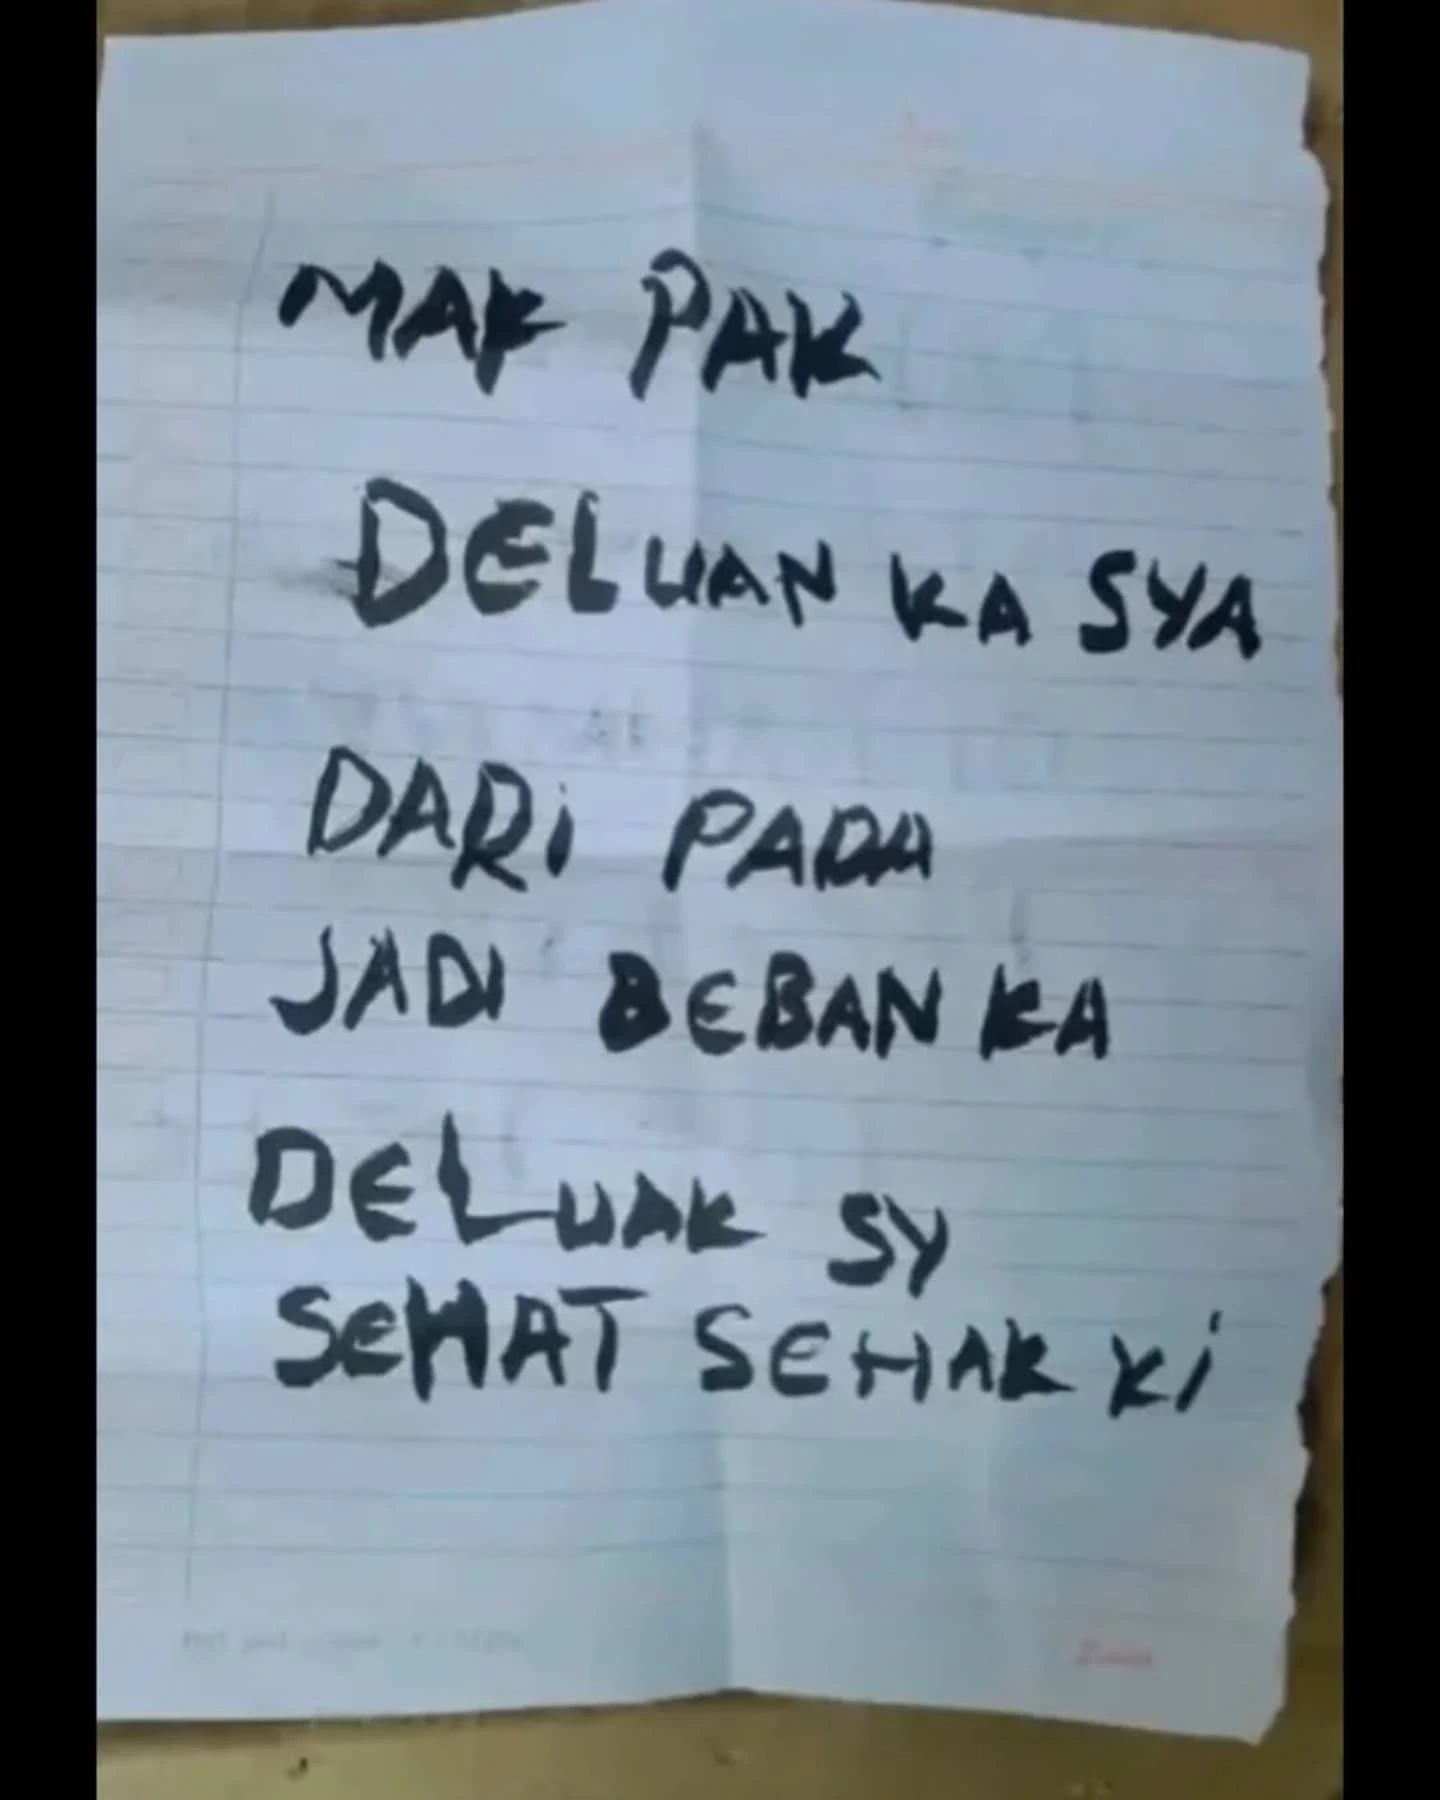 MAK PAK
DELUAN KA SYA
DARi PADA
JADI BEBAN KA
DELUAK SY
SEHAT SEHAK Ki